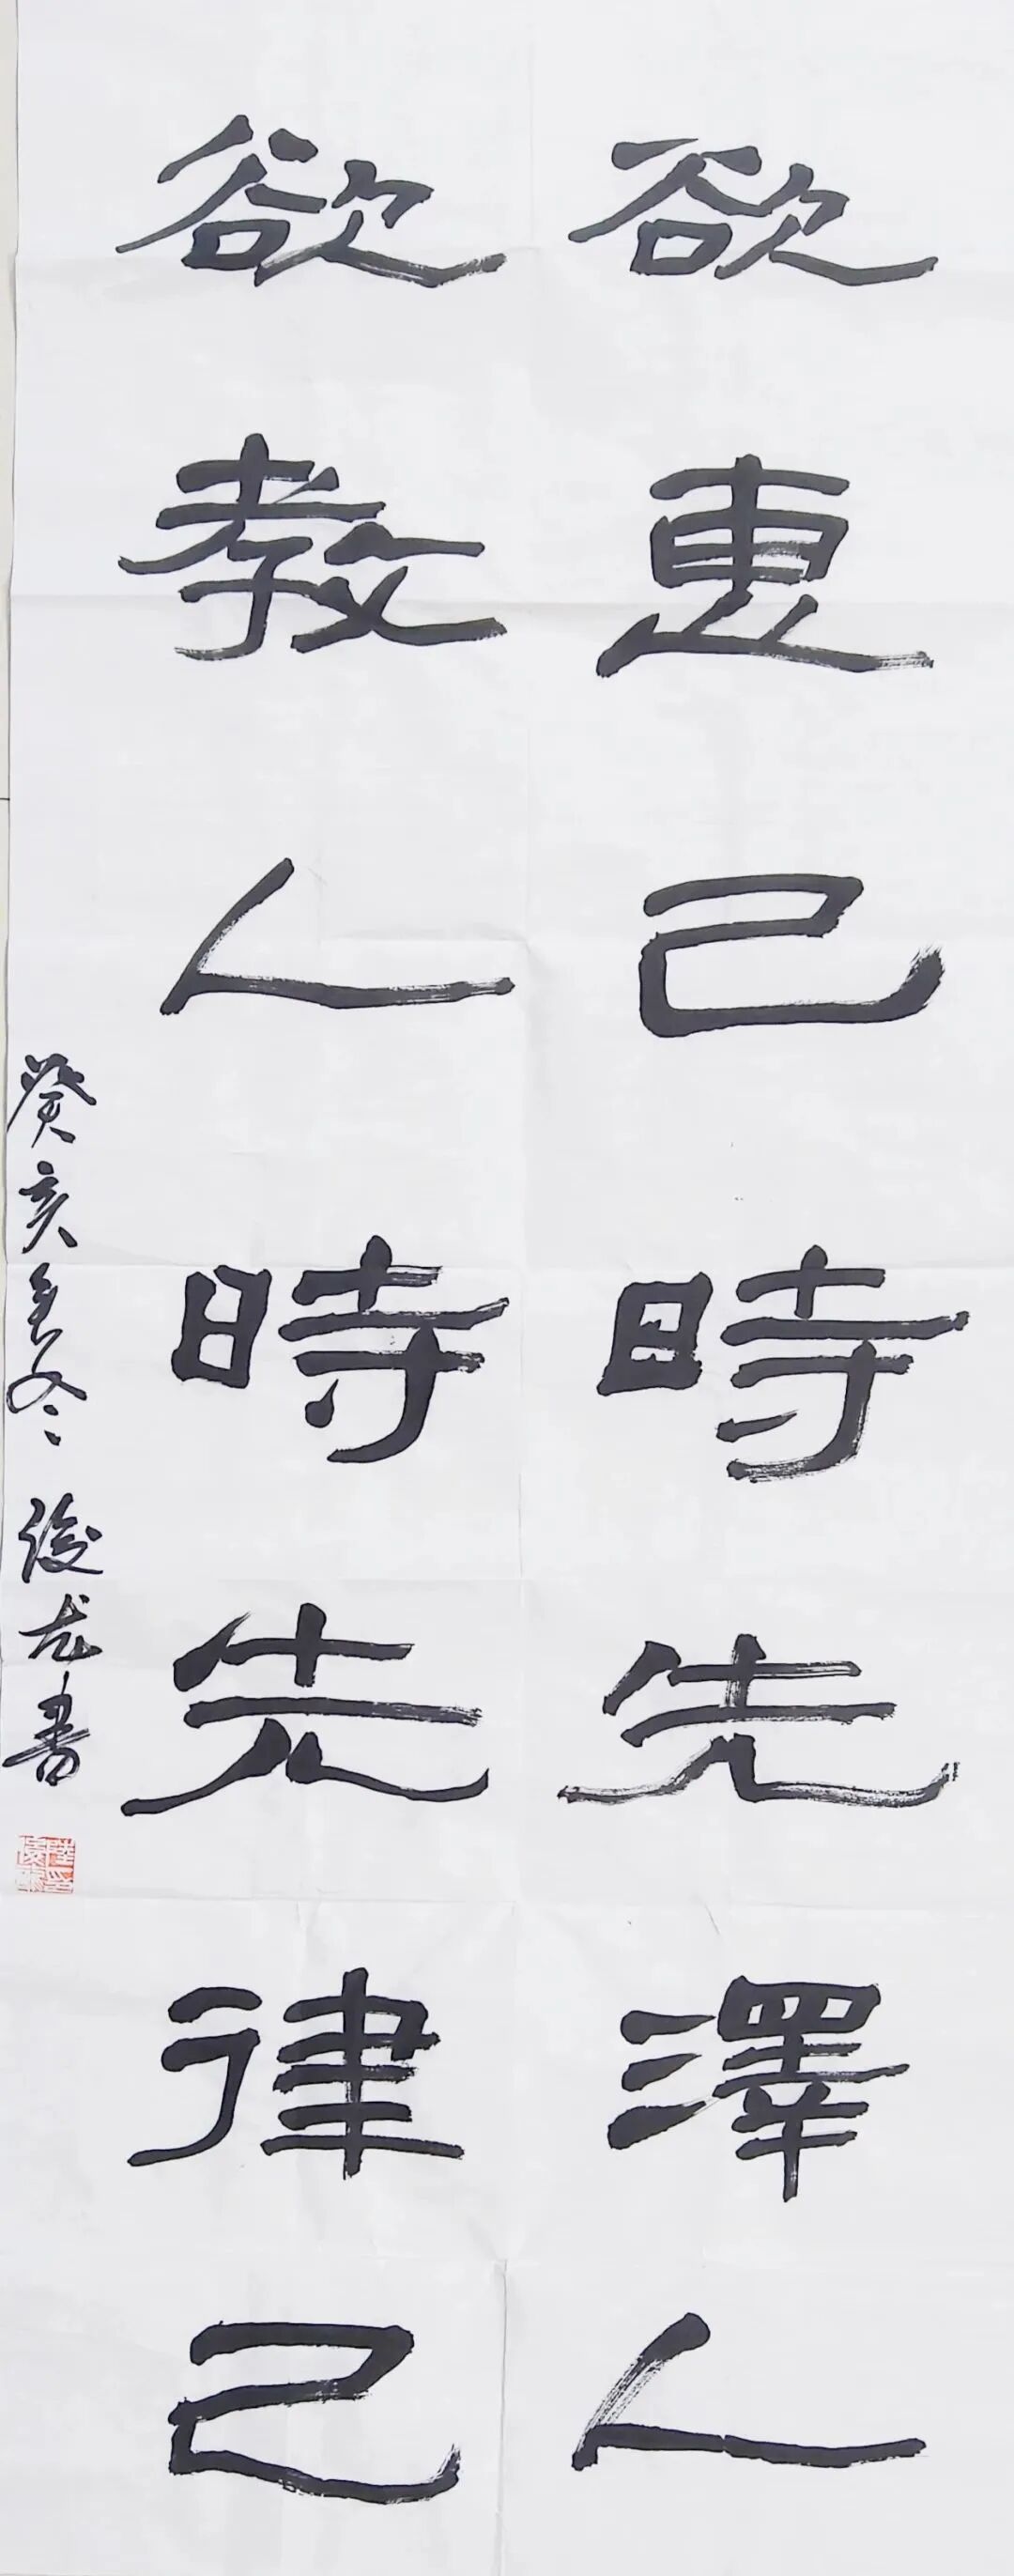 欲惠己時先澤人
欲教人時先律己
癸亥年冬 俊龙書